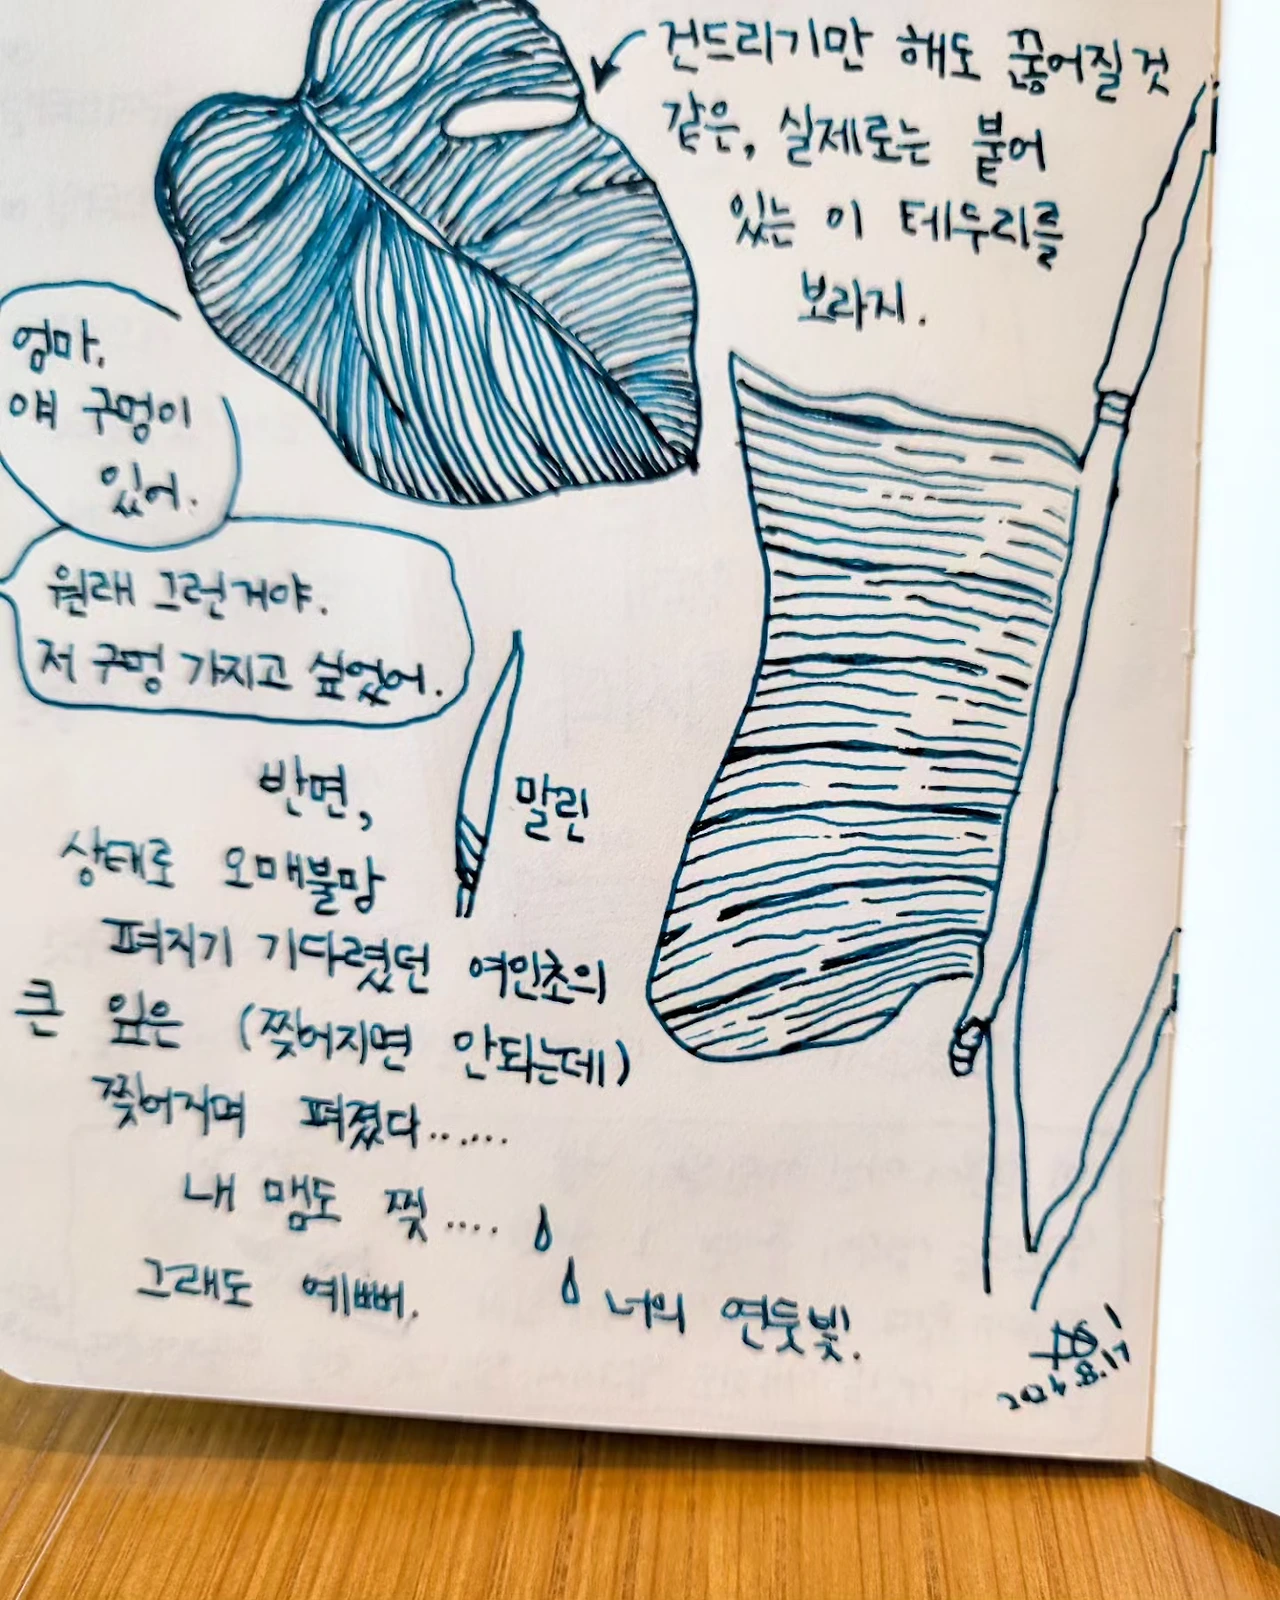 건드리기만 해도 끊어질 것
같은, 실제로는 붙어
있는 이 테두리를
보라지.
엄마,
얘 구멍이
있어.
원래 그런거야.
저 구멍 가지고 싶었어.
반면,
말린
상태로 오매불망
펴지기 기다렸던 여인초의
큰 잎은 (찢어지면 안되는데)
찢어지며 펴졌다......
내 맴도 찢....
그래도 예뻐.
너의 연둣빛.
2024.8.17